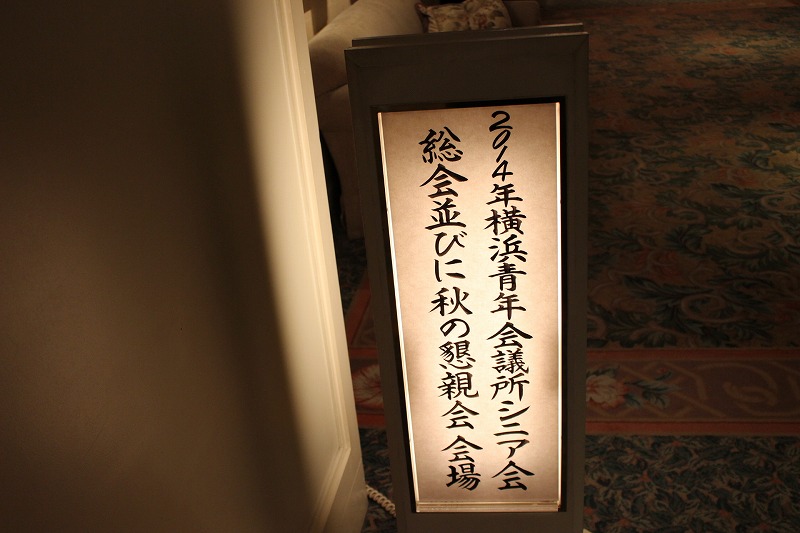 2014年横浜青年会議所シニア会
総会並びに秋の懇親会会場